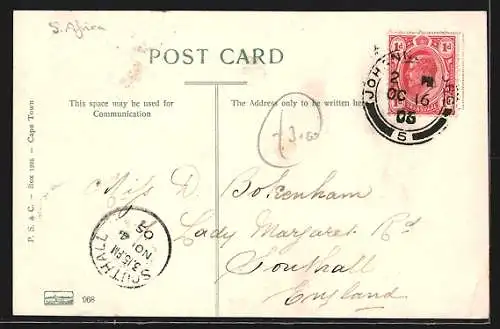 S. Africa
POST CARD
This space may be used for
Communication
The Address only to be written here
1d 1d
JOHANNESBURG
2
OC 16
06
5
7.3.00
Miss D. Bokenham
Lady Margaret Rd
Southall
England
SOUTHALL
3.15 PM
NO 4
05
P. S. & C. — Box 1292 — Cape Town
968